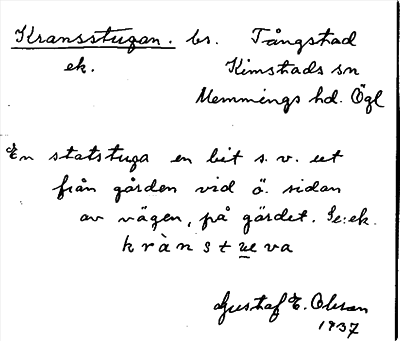 Kransstugan. br. Tångstad
ek. Kimstads sn
Memmings hd. Ögl
En statstuga en bit s. v. ut
från gården vid ö. sidan
av vägen, på gärdet. Se: ek.
krànstueva
Gustaf E. Olsson
1937